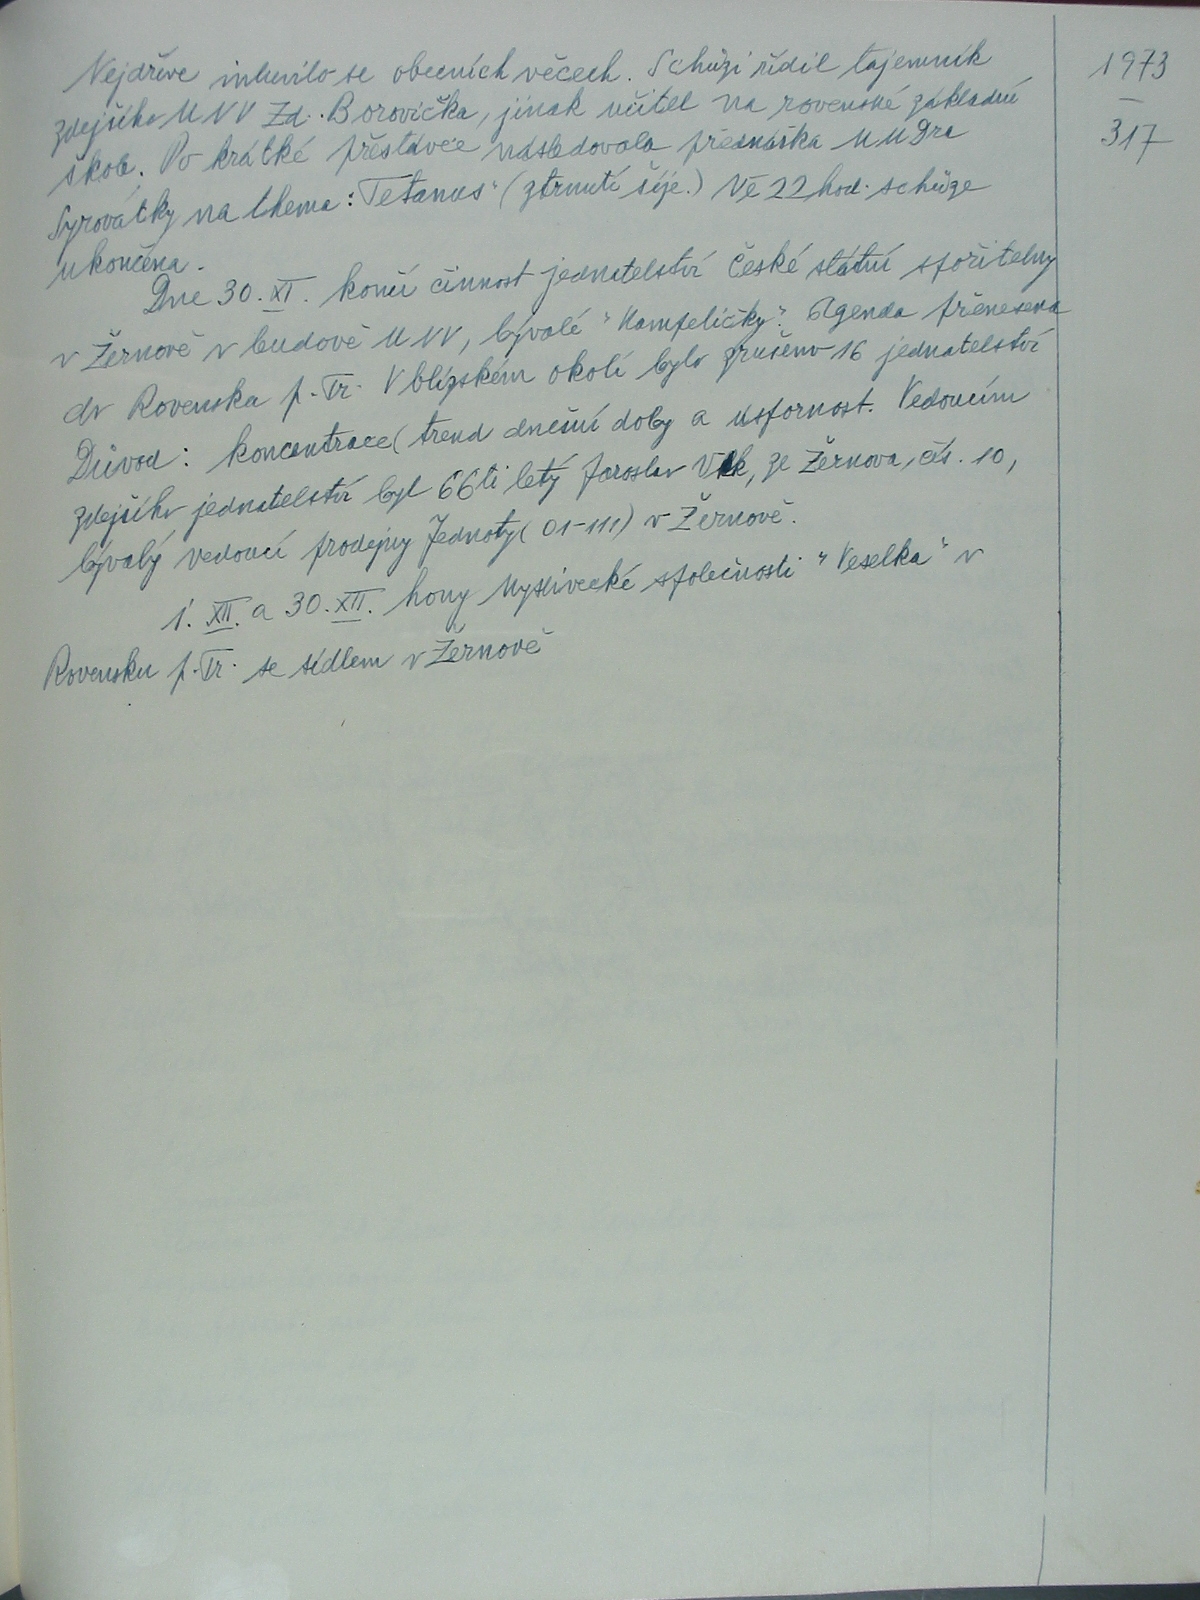 Nejdříve mluvilo se obecních věcech. Schůzi řídil tajemník
zdejšího MNV Zd. Borovička, jinak učitel na rovenské základní
škole. Po krátké přestávce následovala přednáška MUDra
Syrovátky na thema: "Tetanus" (ztrnutí šíje.) Ve 22 hod. schůze
ukončena.
Dne 30. XI. končí činnost jednatelství České státní spořitelny
v Žernově v budově MNV, bývalé "Kampeličky". Agenda přenesena
do Rovenska p. Tr. V blízském okolí bylo zrušeno 16 jednatelství
Důvod: koncentrace (trend dnešní doby a úspornost. Vedoucím
zdejšího jednatelství byl 66ti letý Jaroslav Vlk, ze Žernova, čís. 10,
bývalý vedoucí prodejny Jednoty (01-111) v Žernově.
1. XII. a 30. XII. hony Myslivecké společnosti "Veselka" v
Rovensku p. Tr. se sídlem v Žernově
1973
—
317